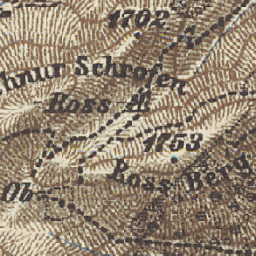 1702
chnur Schrofen
Ross A.
1753
Ross Berg
Ob